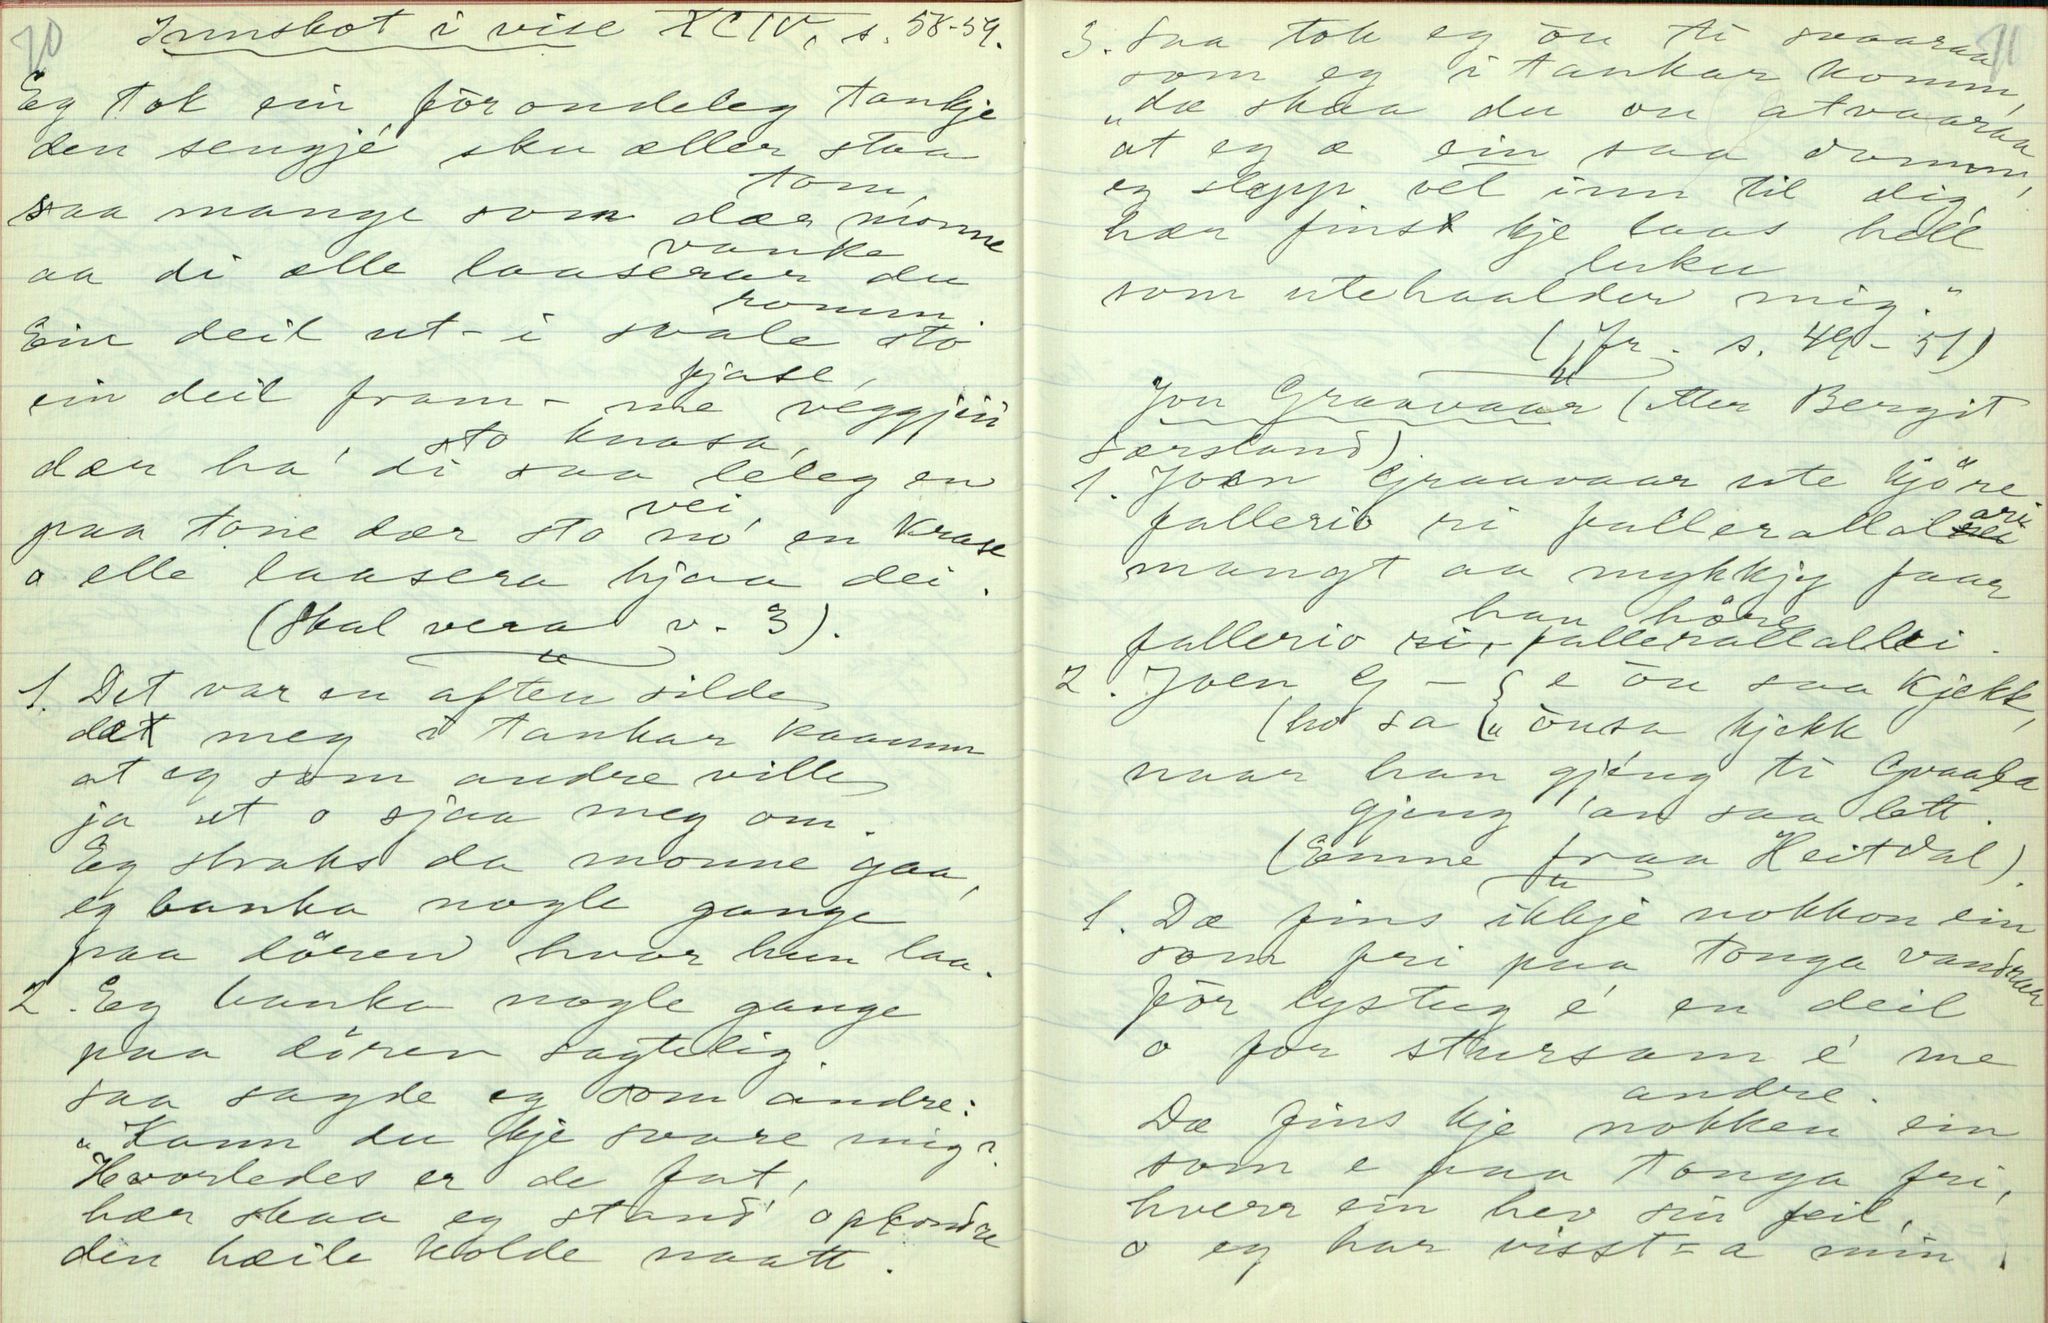 70
Innskot i vise XCIV, s. 58-59.
Eg tok ein förondeleg tankje
den sengjé sku aller staa
tom,
saa mange som dær monne
vanke
aa di alle laaserar du
romm
Ein deil ut- i svale sto
ein deil fram- me veggjin
sto knasa,
dær ha' di saa leleg en
vei
paa tone dær sto nó en krase
o elle laasera hjaa dei.
(Skal vera v. 3).
1. Det var en aften silde
det meg i tankar kaamm
at eg som andre ville
ja ut o sjaa meg om.
Eg straks da monne gaa,
eg banka nogle gange
paa dören hvor hun laa.
2. Eg banka nogle gange
paa dören sagtelig.
saa sagde eg som andre:
"Kann du kje svare mig?
Hvorledes er de fat,
hær skaa eg stand'
den hæile kolde naatt.
71
3. Saa tok eg ön ti svaaraa
som eg i tankar komm,
"dæ skaa du on atvaaraa
at eg æ ein saa domm,
eg slepp vel inn til dig,
hær finst kje laas hell
luku
som utehaalder mig."
(Jfr. s. 49-51)
Jon Graavaar (etter Bergit
Særsland)
1. Joen Graavaar ute kjöre
fallerio ri fallerallal
mangt aa mykkjy faar
han höre
fallerio ri, fallerallallei.
2. Joen G - e ön saa kjekk,
(ho sa " önsa kjekk
naar han gjéng ti Graaba
gjeng 'an saa lett.
(Emne fraa Heitdal).
1. Dæ fins ikkje nokkon ein
som fri paa tonga vandrar
för lystug é en deil
o for stursam é me
andre.
Dæ fins kje nokken ein
som e paa tonga fri,
hverr ein hev sin feil,
o eg har visst-a min!